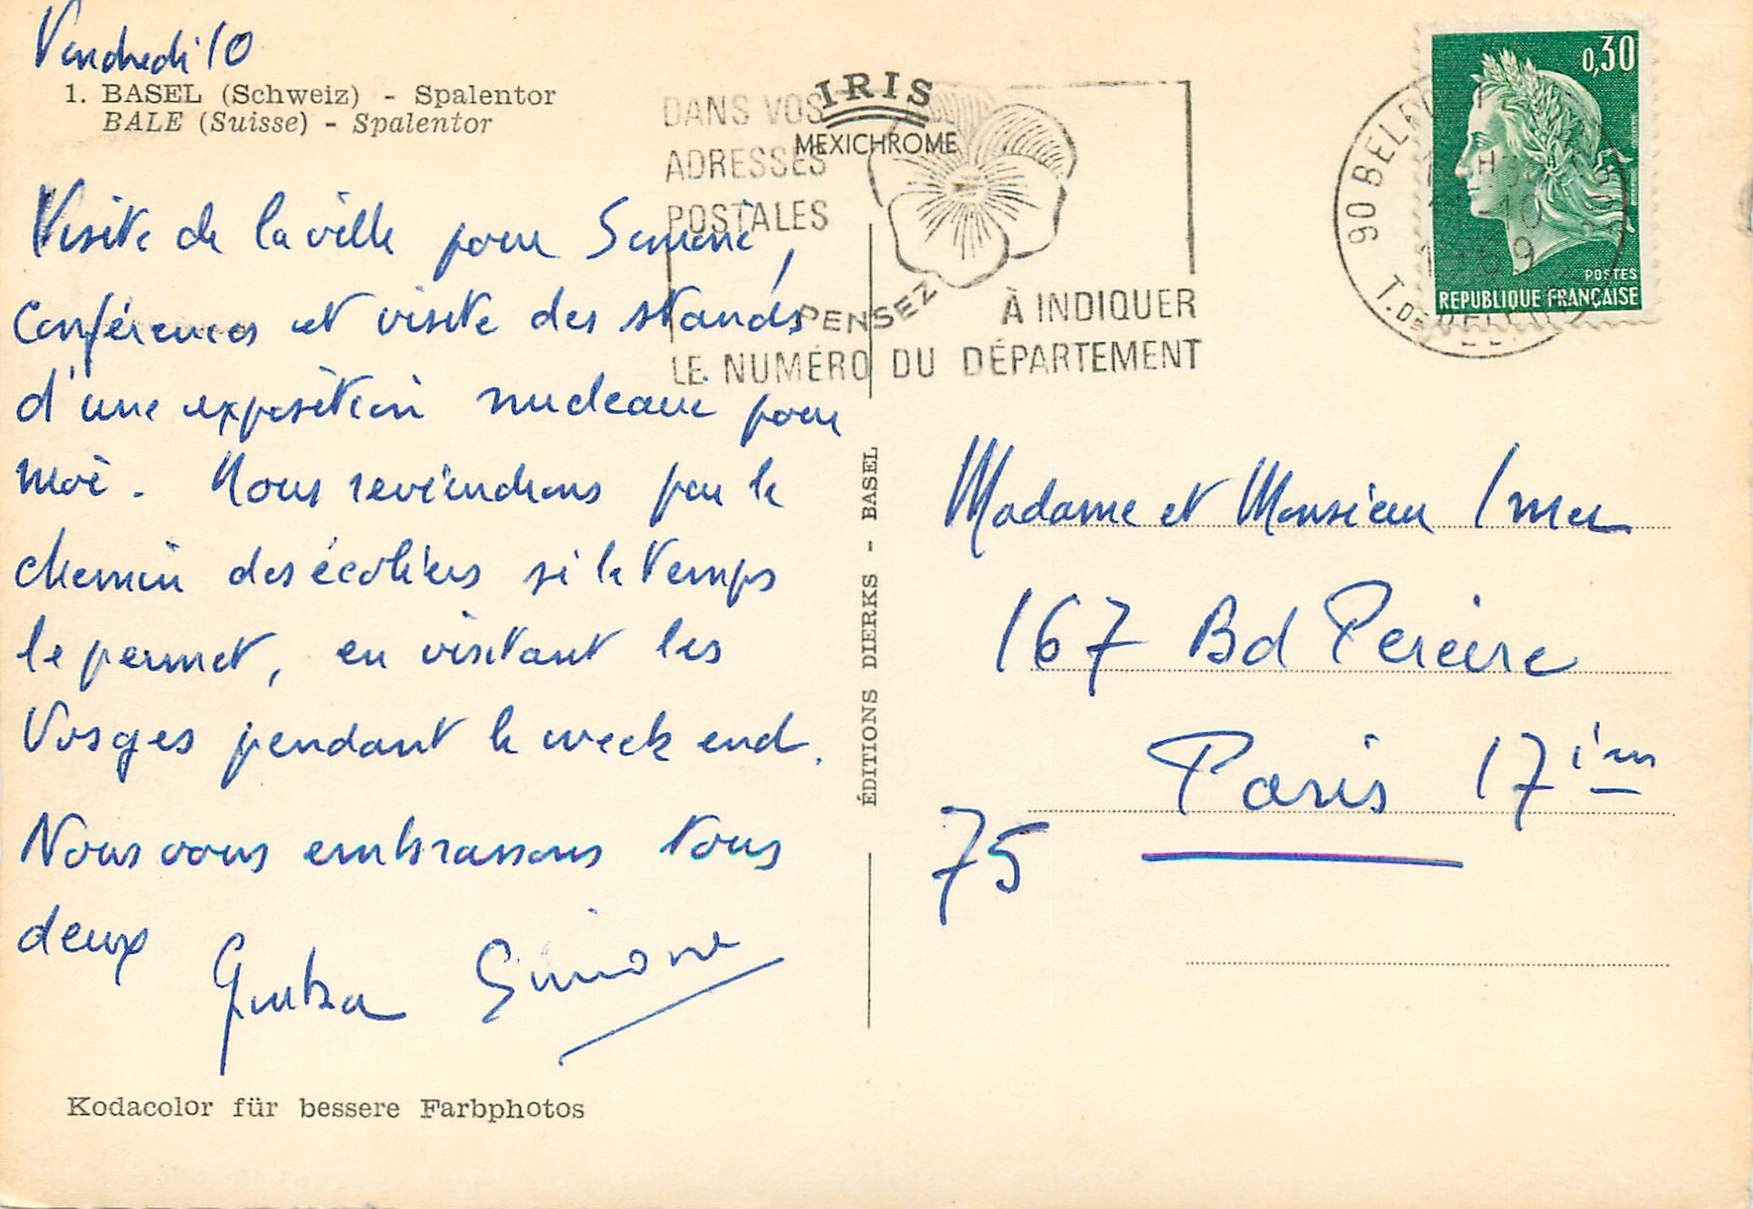 Vendredi 10
1. BASEL (Schweiz) - Spalentor
BALE (Suisse) - Spalentor
IRIS
MEXICHROME
DANS VOS
ADRESSES
POSTALES
PENSEZ
À INDIQUER
LE NUMÉRO DU DÉPARTEMENT
0,30
POSTES
REPUBLIQUE FRANÇAISE
90 BELFORT
T. DE BELFORT
10
1969
Visite de la ville pour Simone,
Conférences et visite des stands
d'une exposition nucleaire pour
moi. Nous reviendrons par le
chemin des écoliers si le temps
le permet, en visitant les
Vosges pendant le week end.
Nous vous embrassons tous
deux
Simone
ÉDITIONS DIERKS - BASEL
Madame et Monsieur Imer
167 Bd Pereire
Paris 17ième
75
Kodacolor für bessere Farbphotos